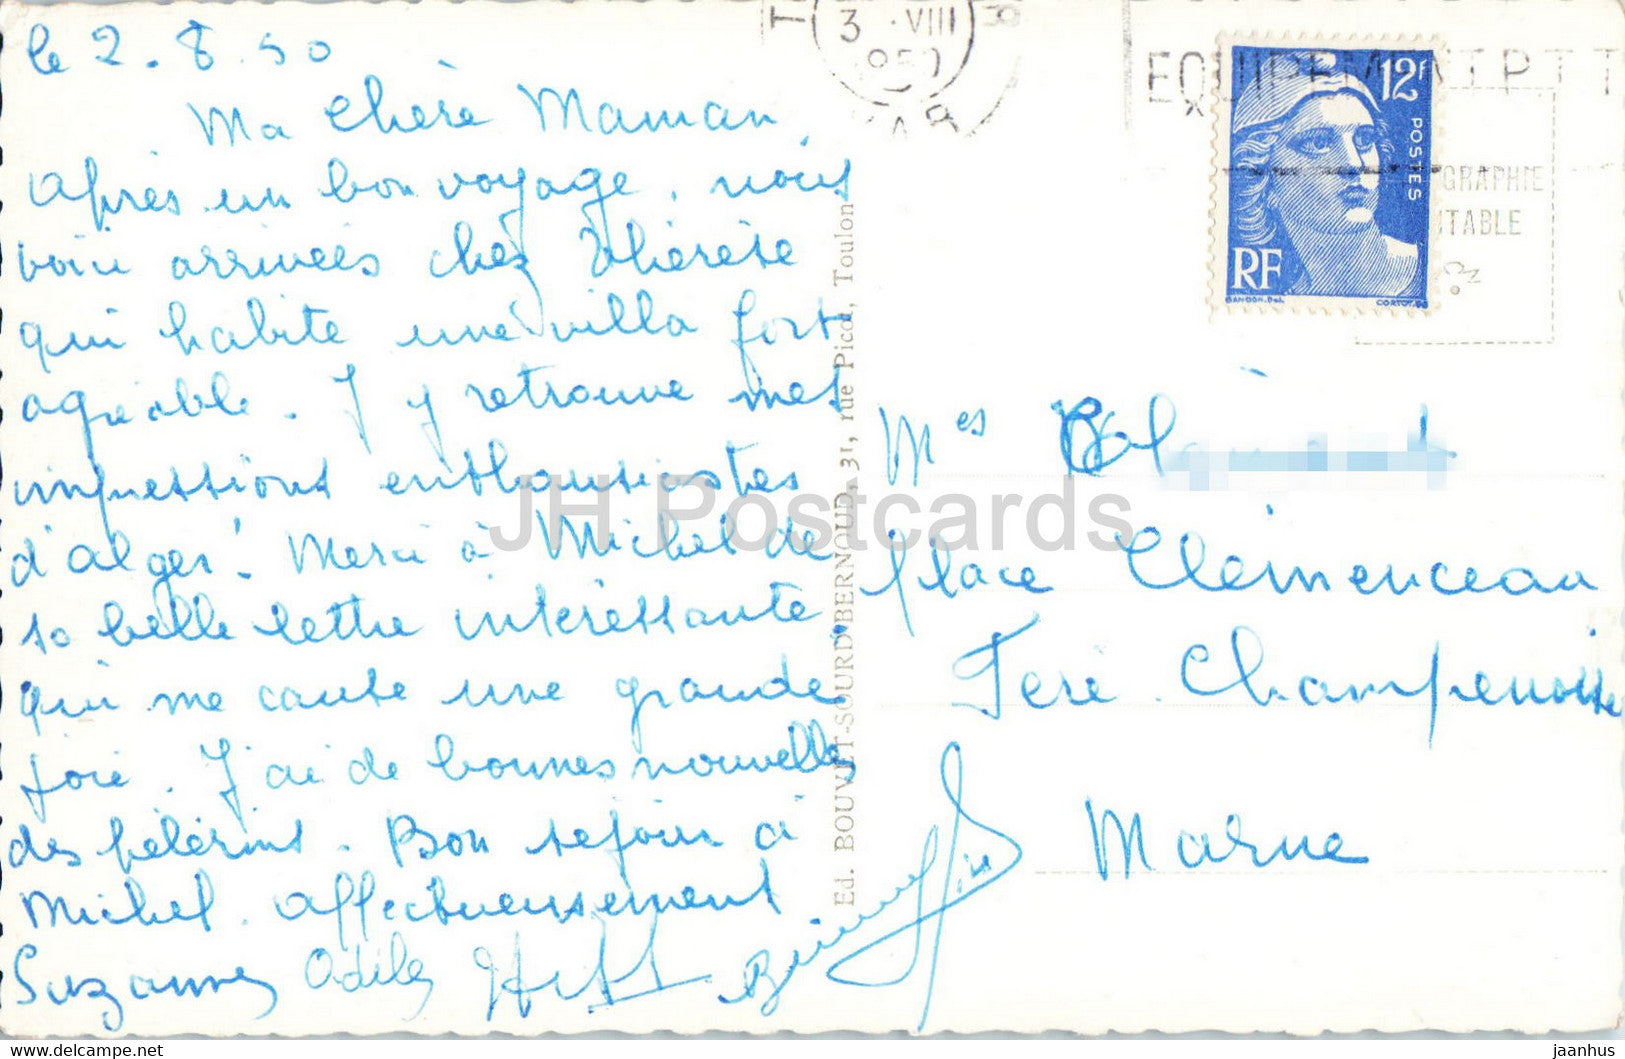 le 2.8.50
Ma chère Maman,
après un bon voyage, nous
voici arrivées chez Thérèse
qui habite une villa fort
agréable. J'y retrouve mes
impressions enthousiastes
d'alger! Merci à Michel de
sa belle lettre intéressante,
qui me cause une grande
joie. J'ai de bonnes nouvelles
des pèlerins. Bon séjour à
Michel. affectueusement
Suzanne Odile
Ed. BOUVET-SOURD BERNOUD, 31, rue Picot, Toulon
3 VIII
1950
VAR
EQUIPEMENT P T T
GRAPHIE
ITABLE
12F
POSTES
RF
GANDON.Del.
CORTOT.SC
Mes
place Clémenceau
Fère Champenoise
Marne
JH Postcards
www.delcampe.net
jaanhus